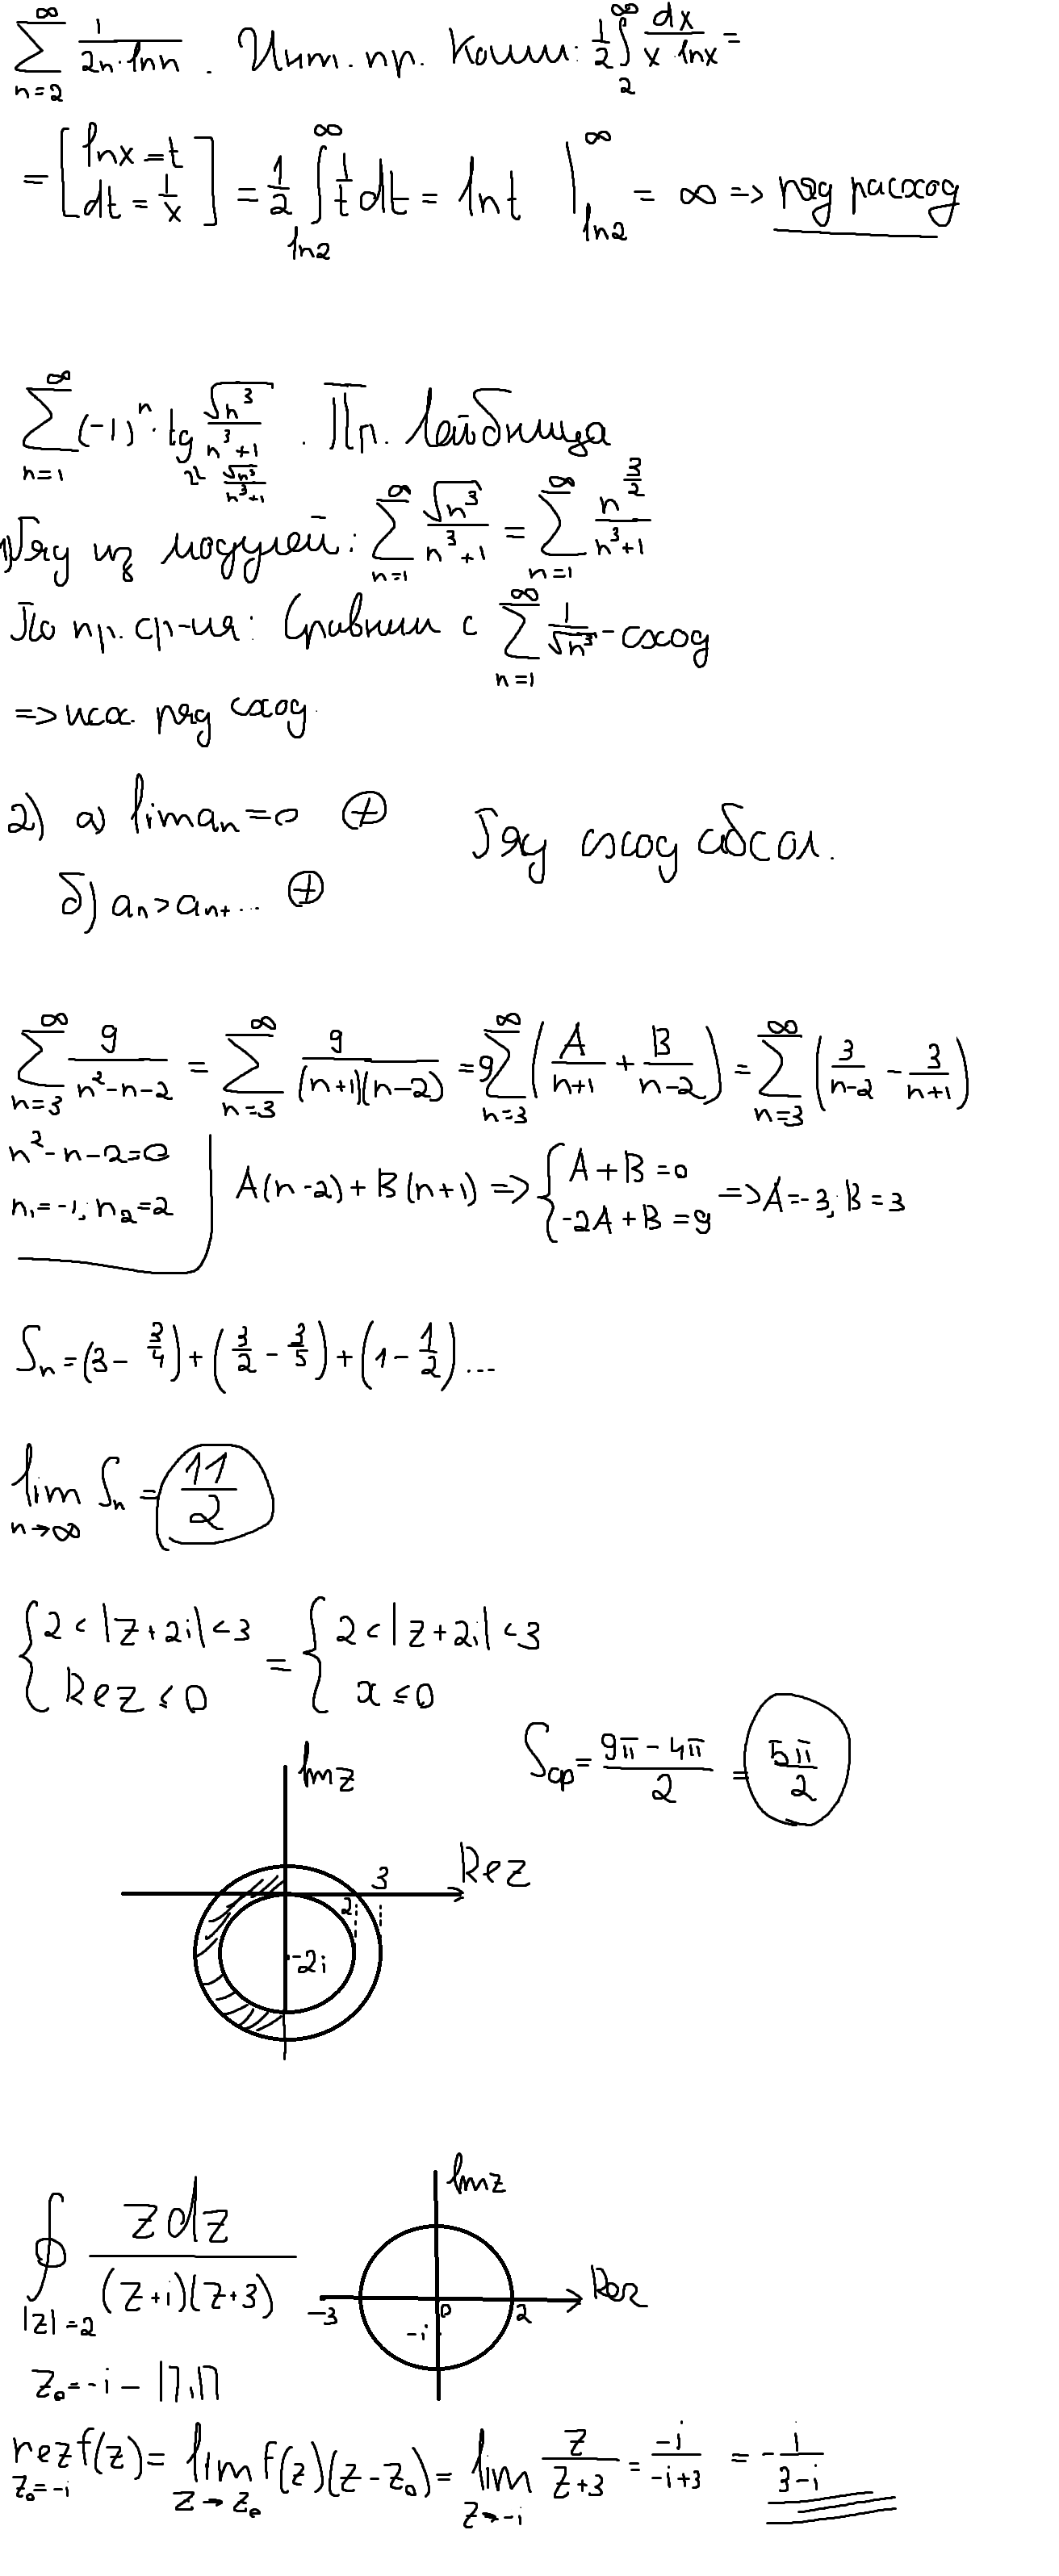 ∑_{n=2}^{∞} 1/(2n·lnn). Инт. пр. Коши: 1/2 ∫_{2}^{∞} dx/(x·lnx) =
= [lnx = t; dt = 1/x] = 1/2 ∫_{ln2}^{∞} 1/t dt = ln t |_{ln2}^{∞} = ∞ => ряд расход
∑_{n=1}^{∞} (-1)^n · tg √n³/(n³+1). Пр. Лейбница
≈ √n³/(n³+1)
1) Ряд из модулей: ∑_{n=1}^{∞} √n³/(n³+1) = ∑_{n=1}^{∞} n^{3/2}/(n³+1)
По пр. ср-ия: Сравним с ∑_{n=1}^{∞} 1/√n³ - сход
=> исх. ряд сход.
2) а) lim a_n = 0 ⊕ Ряд сход абсол.
б) a_n > a_{n+...} ⊕
∑_{n=3}^{∞} 9/(n²-n-2) = ∑_{n=3}^{∞} 9/((n+1)(n-2)) = 9∑_{n=3}^{∞} (A/(n+1) + B/(n-2)) = ∑_{n=3}^{∞} (3/(n-2) - 3/(n+1))
n²-n-2=0
n₁=-1; n₂=2
A(n-2)+B(n+1) => {A+B=0; -2A+B=9 => A=-3; B=3
S_n = (3 - 3/4) + (3/2 - 3/5) + (1 - 1/2) ...
lim_{n→∞} S_n = 11/2
{2<|z+2i|<3; Rez ≤ 0 = {2<|z+2i|<3; x ≤ 0
S_ср = (9π - 4π)/2 = 5π/2
Imz
Rez
3
2
-2i
∮_{|z|=2} zdz/((z+i)(z+3))
Imz
Rez
-3
0
2
-i
z₀=-i - П.П
rez_{z₀=-i} f(z) = lim_{z→z₀} f(z)(z-z₀) = lim_{z→-i} z/(z+3) = -i/(-i+3) = -i/(3-i)